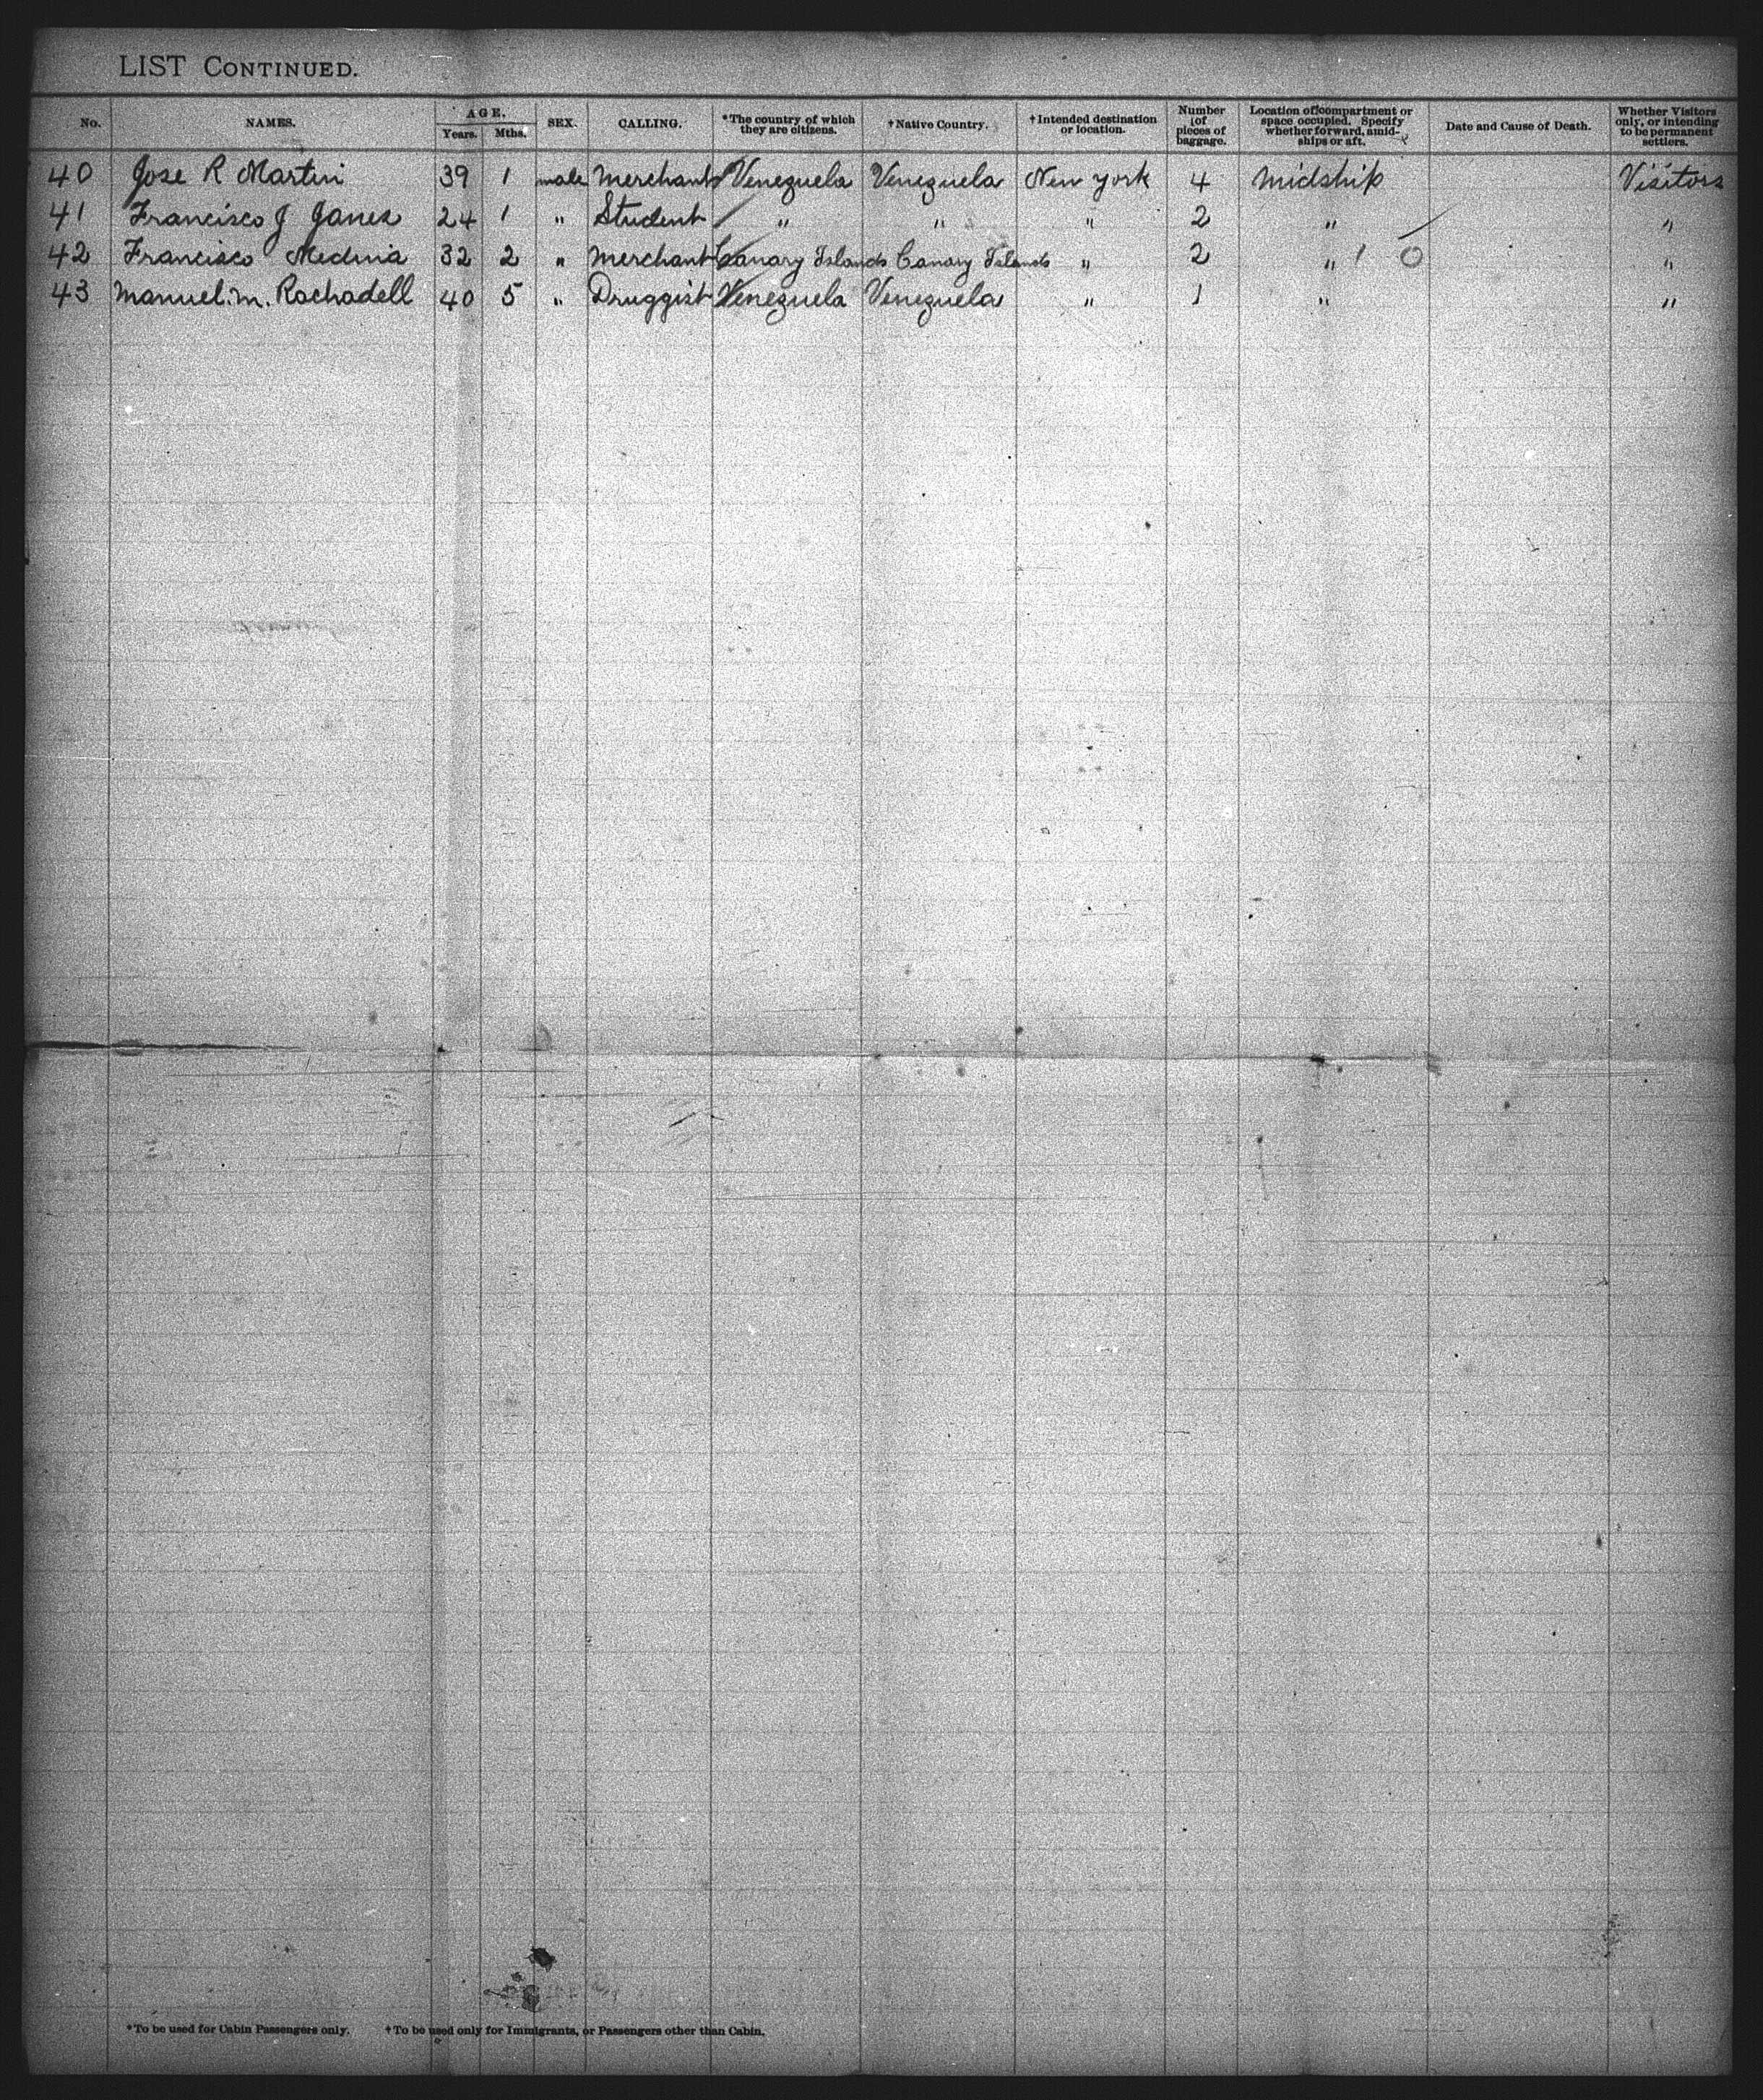 LIST CONTINUED.
No. NAMES. AGE. Years. Mths. SEX. CALLING. *The country of which they are citizens. †Native Country. †Intended destination or location. Number of pieces of baggage. Location of compartment or space occupied. Specify whether forward, amid-ships or aft. Date and Cause of Death. Whether Visitors only, or intending to be permanent settlers.
40 Jose R Martin 39 1 male Merchant Venezuela Venezuela New York 4 Midship Visitors
41 Francisco J Janes 24 1 " Student " " " 2 " "
42 Francisco Medina 32 2 " Merchant Canary Islands Canary Islands " 2 " 1 0 "
43 Manuel. M. Rachadell 40 5 " Druggist Venezuela Venezuela " 1 " "
*To be used for Cabin Passengers only. †To be used only for Immigrants, or Passengers other than Cabin.